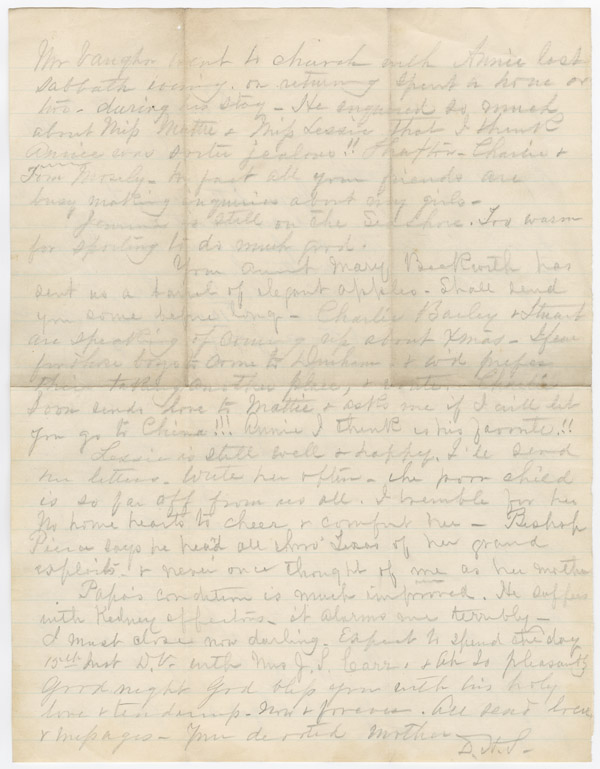 Mr Vaughn went to church with Annie last
Sabbath evening. on returning spent a hour or
two - during his stay - He enquired so much
about Miss Mattie & Miss Lessie that I think
Annie was sorter jealous!! Charlie &
Tom Mosely - In fact all your friends are
busy making inquiries about my girls -
is still on the Sea Shore. Too warm
for sporting to do much good.
Your Aunt Mary Beckwith has
sent us a barrel of elegant apples. Shall send
you some before long - Charlie Bailey & Stuart
are speaking of coming up about Xmas - I fear
boys to come to Durham & wd prefer
their taking another place,
Soon sends love to Mattie & asks me if I will let
you go to China!!! Annie I think is his favorite!!
Lessie is still well & happy. I'le send
her letters. Write her often - the poor child
is so far off from us all. I tremble for her
No home hearts to cheer & comfort her - Bishop
Pierce says he heard all thro' Texas of her grand
exploits. & never once thought of me as her mother
Papa's condition is much improved. He suffers
with Kidney affection - it alarms me terribly -
I must close now darling. Expect to spend the day
15th Inst D.V. with Mrs J. S. Carr, & Ah So pleasantly
Good night God bless you with his holy
love & tenderness - Now & forever. All send love
& messages - Your devoted Mother